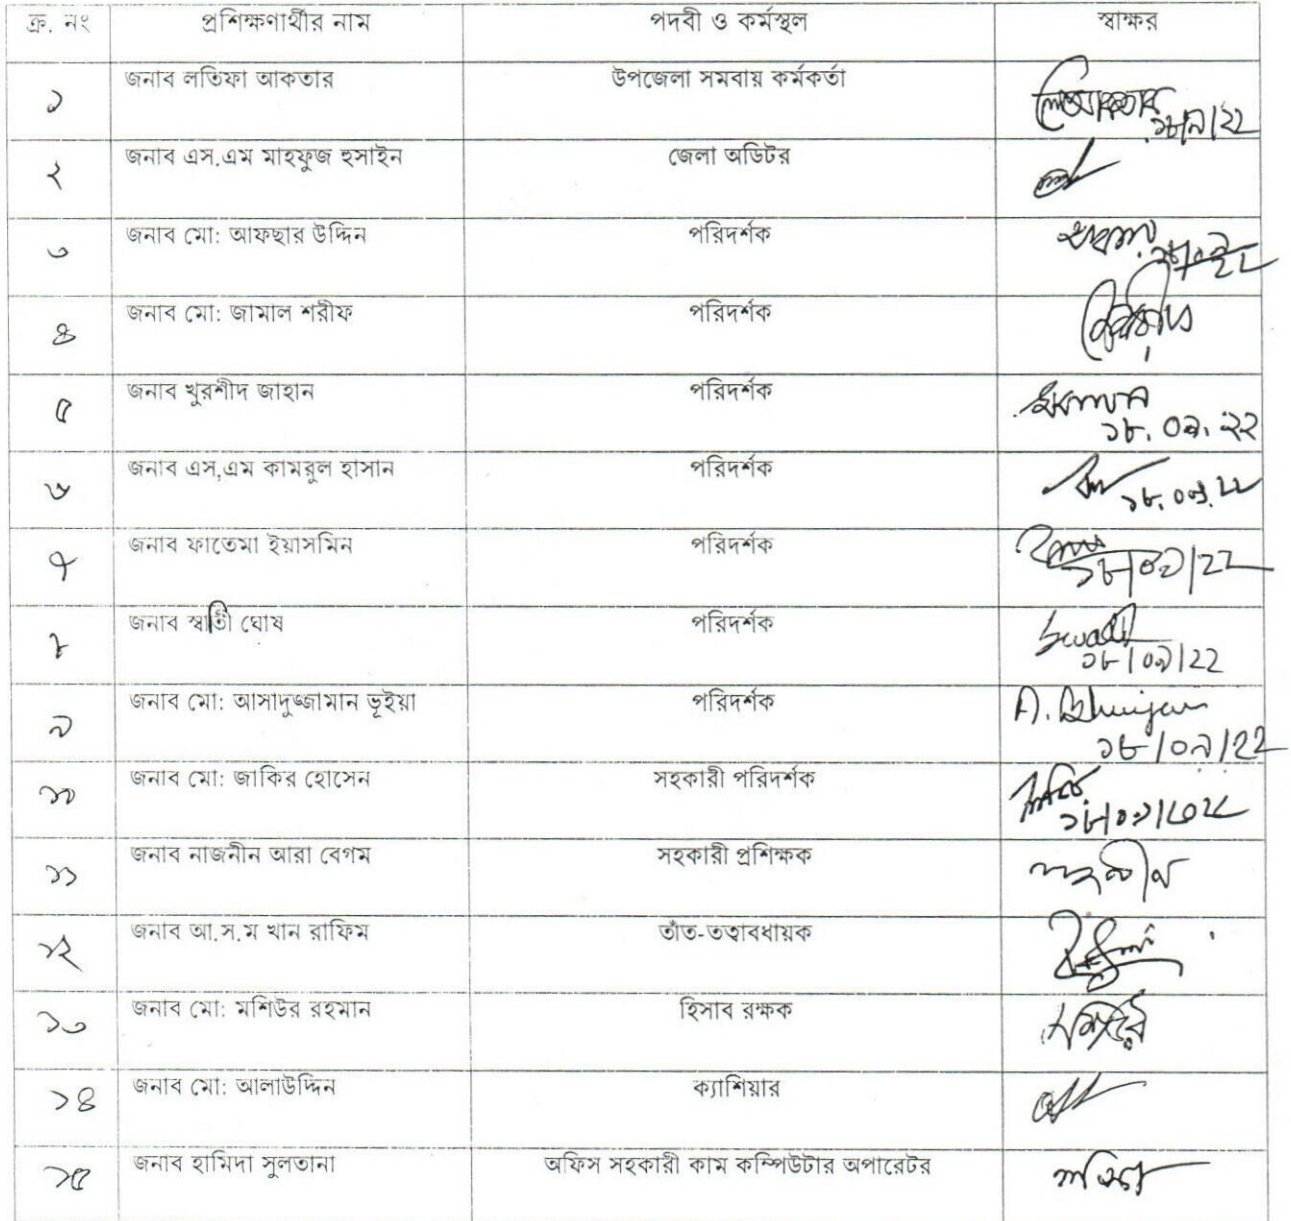 ক্র. নং প্রশিক্ষণার্থীর নাম পদবী ও কর্মস্থল স্বাক্ষর
১ জনাব লতিফা আকতার উপজেলা সমবায় কর্মকর্তা ১৮/৯/২২
২ জনাব এস.এম মাহফুজ হুসাইন জেলা অডিটর
৩ জনাব মো: আফছার উদ্দিন পরিদর্শক
৪ জনাব মো: জামাল শরীফ পরিদর্শক
৫ জনাব খুরশীদ জাহান পরিদর্শক ১৮. ০৯. ২২
৬ জনাব এস,এম কামরুল হাসান পরিদর্শক ১৮. ০৯. ২২
৭ জনাব ফাতেমা ইয়াসমিন পরিদর্শক ১৮/০৯/২২
৮ জনাব স্বাতী ঘোষ পরিদর্শক Swati ১৮/০৯/২২
৯ জনাব মো: আসাদুজ্জামান ভূইয়া পরিদর্শক A. Bhuiyan ১৮/০৯/২২
১০ জনাব মো: জাকির হোসেন সহকারী পরিদর্শক
১১ জনাব নাজনীন আরা বেগম সহকারী প্রশিক্ষক
১২ জনাব আ.স.ম খান রাফিম তাঁত-তত্বাবধায়ক
১৩ জনাব মো: মশিউর রহমান হিসাব রক্ষক
১৪ জনাব মো: আলাউদ্দিন ক্যাশিয়ার
১৫ জনাব হামিদা সুলতানা অফিস সহকারী কাম কম্পিউটার অপারেটর